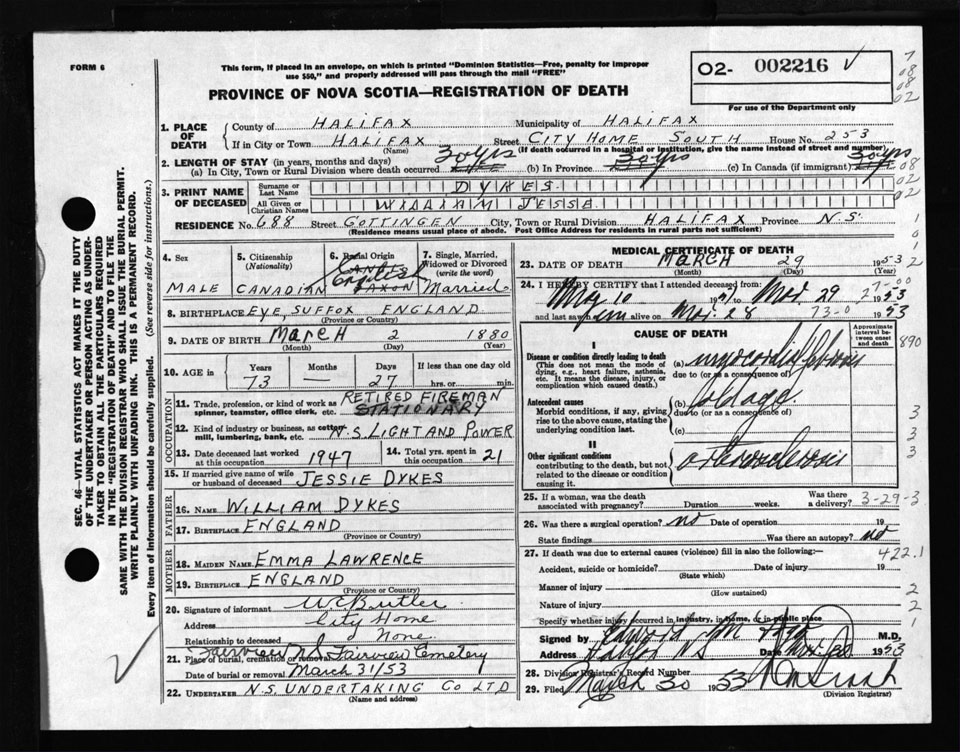 FORM 6
This form, if placed in an envelope, on which is printed "Dominion Statistics—Free, penalty for improper
use $50," and properly addressed will pass through the mail "FREE"
02- 002216 √
For use of the Department only
7
08
08
02
PROVINCE OF NOVA SCOTIA—REGISTRATION OF DEATH
1. PLACE OF DEATH
County of HALIFAX Municipality of HALIFAX
If in City or Town HALIFAX Street CITY HOME SOUTH House No. 253
(Name) (If death occurred in a hospital or institution, give the name instead of street and number)
2. LENGTH OF STAY (in years, months and days)
(a) In City, Town or Rural Division where death occurred 30 yrs (b) In Province 30 yrs (c) In Canada (if immigrant) 30 yrs
08
3. PRINT NAME OF DECEASED
Surname or Last Name DYKES
02
All Given or Christian Names WILLIAM JESSE
02
RESIDENCE No. 688 Street GOTTINGEN City, Town or Rural Division HALIFAX Province N.S.
(Residence means usual place of abode. Post Office Address for residents in rural parts not sufficient)
SEC. 46—VITAL STATISTICS ACT MAKES IT THE DUTY
OF THE UNDERTAKER OR PERSON ACTING AS UNDER-
TAKER TO OBTAIN ALL THE PARTICULARS REQUIRED
IN THE "REGISTRATION OF DEATH" AND TO FILE THE
SAME WITH THE DIVISION REGISTRAR WHO SHALL ISSUE THE BURIAL PERMIT.
WRITE PLAINLY WITH UNFADING INK. THIS IS A PERMANENT RECORD.
Every item of information should be carefully supplied. (See reverse side for instructions.)
4. Sex
MALE
5. Citizenship
(Nationality)
CANADIAN
6. Racial Origin
English
SAXON
7. Single, Married,
Widowed or Divorced
(write the word)
Married.
8. BIRTHPLACE EYE, SUFFOX ENGLAND
9. DATE OF BIRTH MARCH 2 1880
(Month) (Day) (Year)
10. AGE in Years Months Days If less than one day
73 — 27 hrs. or min.
OCCUPATION
11. Trade, profession, or kind of work as RETIRED FIREMAN
spinner, teamster, office clerk, etc. STATIONARY
12. Kind of industry or business, as cotton
mill, lumbering, bank, etc. N.S. LIGHT AND POWER
13. Date deceased last worked
at this occupation 1947
14. Total yrs. spent in
this occupation 21
15. If married give name of wife
or husband of deceased JESSIE DYKES
FATHER
16. NAME WILLIAM DYKES
17. BIRTHPLACE ENGLAND
(Province or Country)
MOTHER
18. MAIDEN NAME EMMA LAWRENCE
19. BIRTHPLACE ENGLAND
(Province or Country)
20. Signature of informant W. C. Butler
Address City Home
Relationship to deceased None.
21. Place of burial, cremation or removal Fairview N.S. Fairview Cemetery
Date of burial or removal March 31/53
22. UNDERTAKER N.S. UNDERTAKING CO LTD
(Name and address)
MEDICAL CERTIFICATE OF DEATH
23. DATE OF DEATH MARCH 29 1953
(Month) (Day) (Year)
24. I HEREBY CERTIFY that I attended deceased from:
May 10 to Mar. 29 1953
and last saw him alive on Mar. 28 1953
27-00
73-0
CAUSE OF DEATH
Approximate
interval
between
onset
and death
890
I
Disease or condition directly leading to death
(This does not mean the mode of
dying, e.g., heart failure, asthenia,
etc. It means the disease, injury, or
complication which caused death.)
(a) myocardial fibrosis
due to (or as a consequence of)
Antecedent causes
Morbid conditions, if any, giving
rise to the above cause, stating the
underlying condition last.
(b) old age
due to (or as a consequence of)
(c)
II
Other significant conditions
contributing to the death, but not
related to the disease or condition
causing it.
arteriosclerosis
25. If a woman, was the death
associated with pregnancy? Duration weeks. Was there
a delivery?
3-29-3
26. Was there a surgical operation? no Date of operation 19
State findings Was there an autopsy? no
27. If death was due to external causes (violence) fill in also the following:
422.1
Accident, suicide or homicide? Date of injury 19
(State which)
Manner of injury
(How sustained)
Nature of injury
Specify whether injury occurred in industry, in home, or in public place
Signed by M.D.
Address Halifax NS Date Mar. 30 1953
28. Division Registrar's Record Number
29. Filed March 30 1953
(Division Registrar)